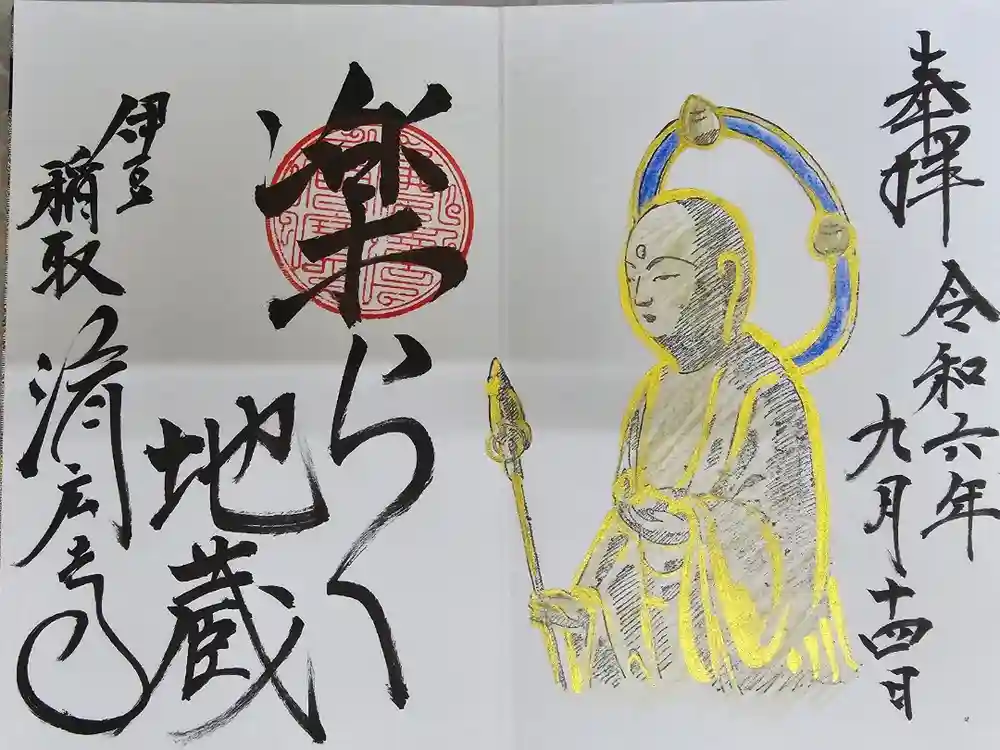 奉拝
令和六年
九月十四日
楽らく
地蔵
伊豆
稲取
済広寺